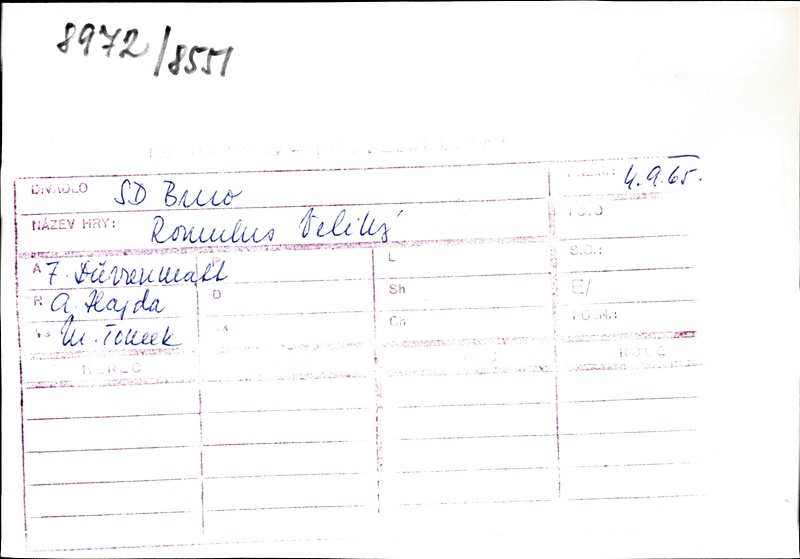 8972/8551
DIVADLO SD Brno 4.9.65.
NÁZEV HRY: Romulus Veliký
A F. Dürrenmatt L S.G.:
R A. Hajda D Sh E/
Vs M. Tomek Ch POZN.:
HEREC ROLE